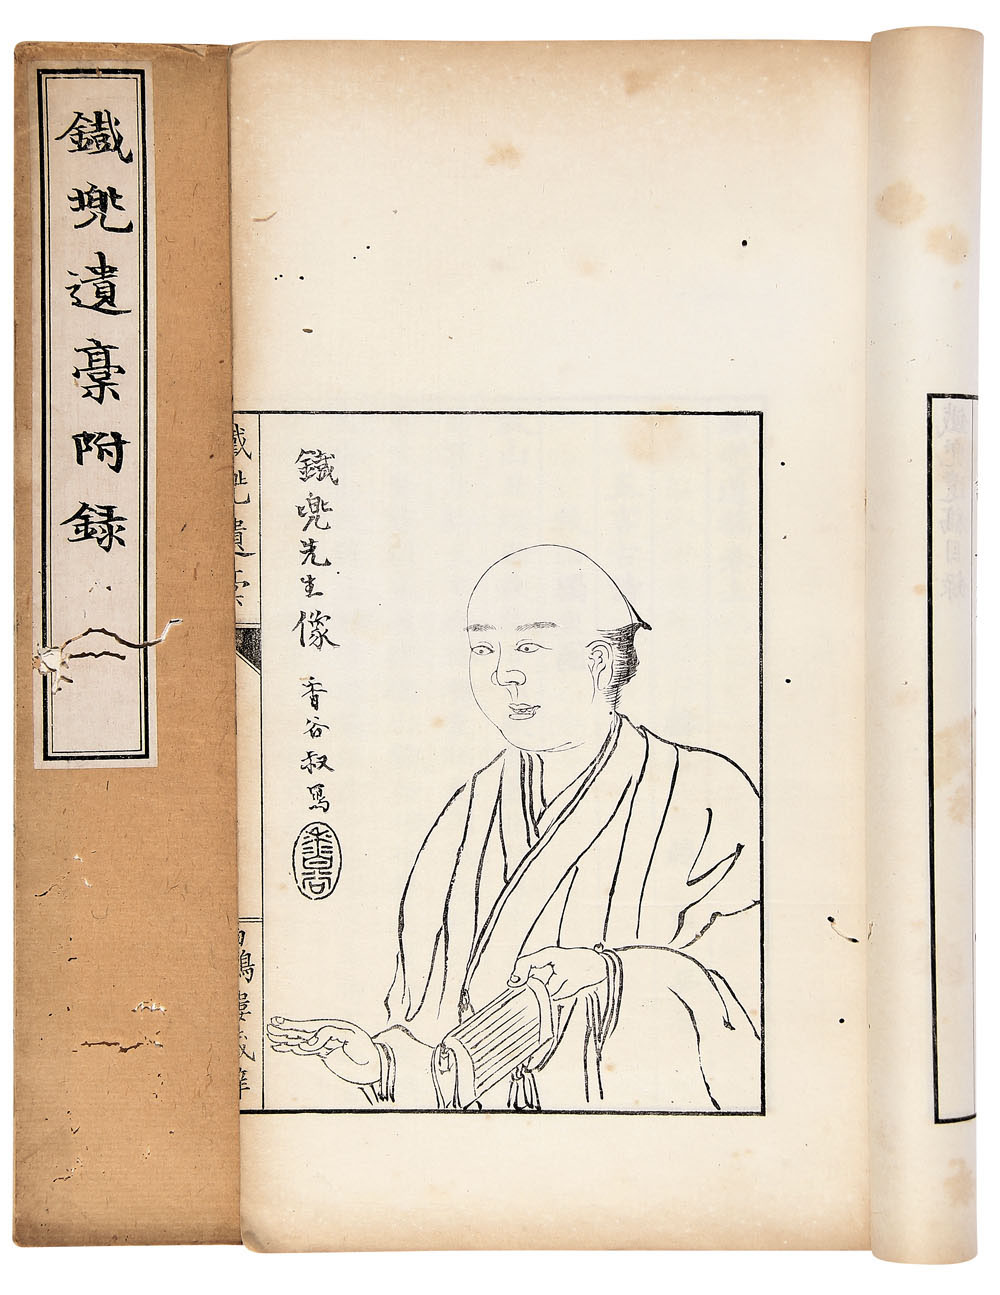 鐵兜遺稾附録
鐵兜先生像 香谷叔寫
鐵兜遺稾
鐵兜遺稿目録